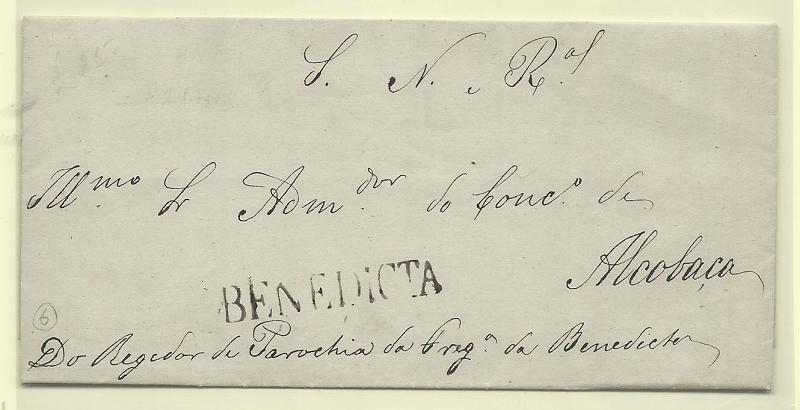 S. N. e R.al
Ill.mo Sr Adm.dor do Conc.o de
Alcobaça
BENEDICTA
6
Do Regedor de Parochia da Freg.a da Benedicta